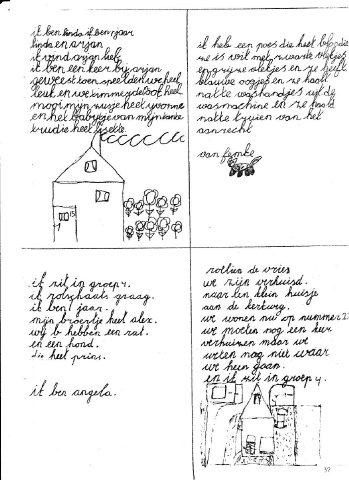 ik ben linda ik ben 7 jaar
linda en arjan
ik vind arjan lief
ik ben een keer bij arjan
geweest toen speelden we heel
leuk en we timmerde ook heel
mooi mijn zusje heet yvonne
en het babytje van mijn tante
trudie heet lisette.
15
ik heb een poes die heet
ze is wit met zwarte vlekjes
en grijze vlekjes en ze heeft
blauwe oogjes en ze haalt
natte washandjes uit de
wasmachine en ze haalt
natte truien van het
aanrecht
van femke
ik zit in groep 4.
ik rolschaats graag.
ik ben jaar.
mijn broertje heet alex.
wij b hebben een rat.
en een hond.
die heet prins.
ik ben angela.
de vries
we zijn verhuisd.
naar een klein huisje
aan de kerkweg.
we wonen nu op nummer 22
we moeten nog een keer
verhuizen maar we
weten nog niet waar
we heen gaan.
en ik zit in groep 4.
37